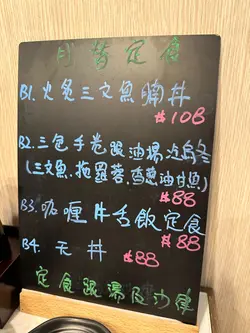 B1. 火炙三文魚腩丼
$108
B2. 三包手卷跟油揚冷烏冬
(三文魚、拖羅蓉、香葱油甘魚)
$88
B3. 咖喱牛舌飯定食
$88
B4. 天丼 $88
定食跟湯及沙律